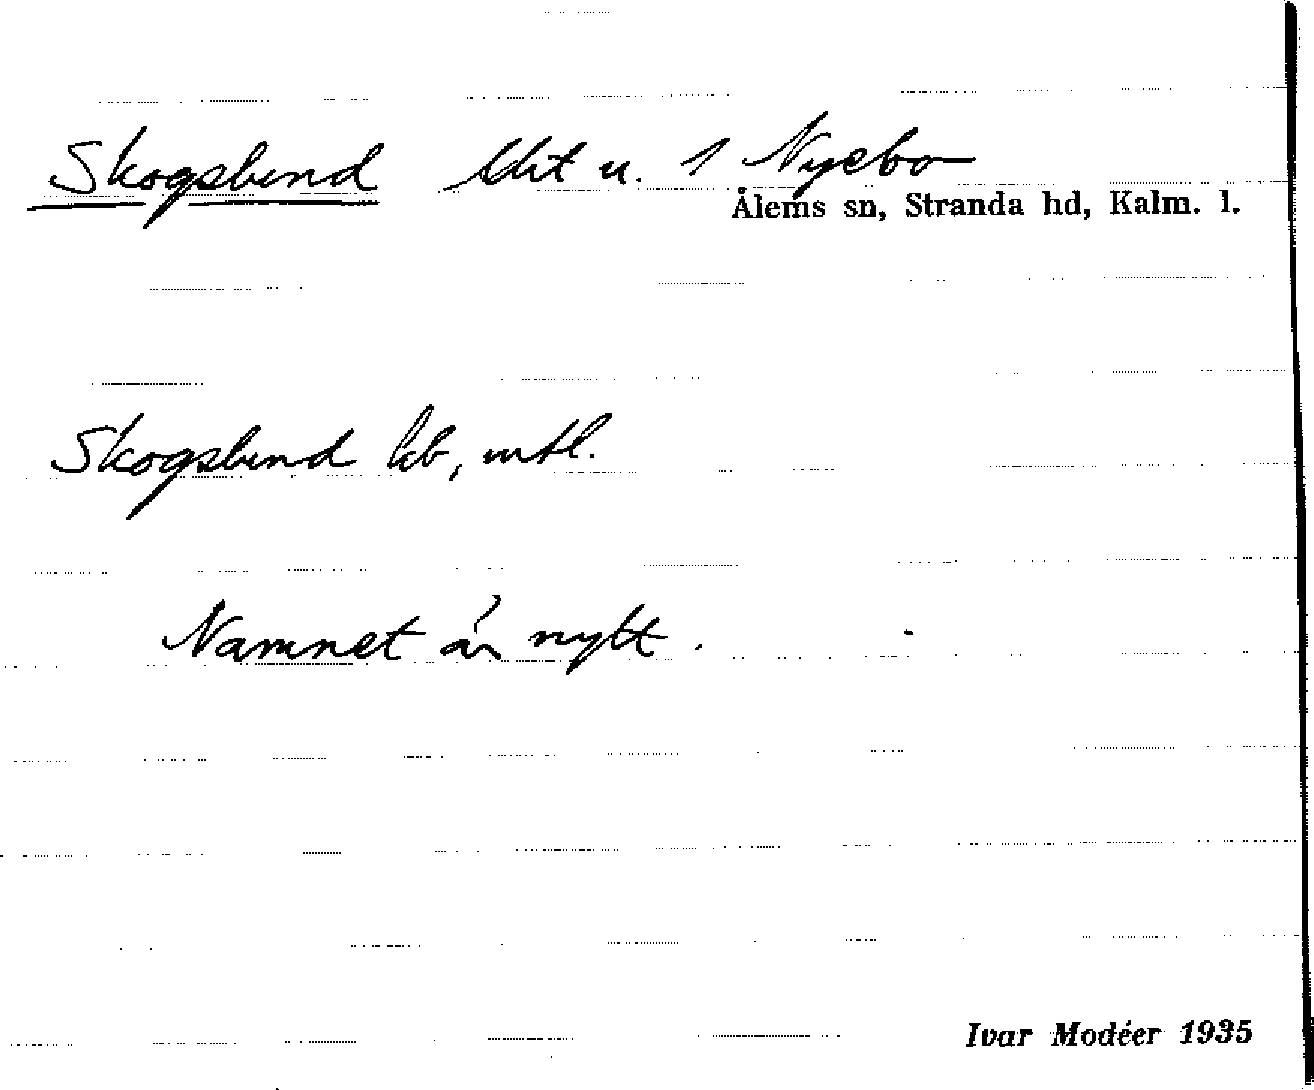 Skogslund lht u. 1 Nyebo
Ålems sn, Stranda hd, Kalm. l.
Skogslund kb, mtl.
Namnet är nytt.
Ivar Modéer 1935